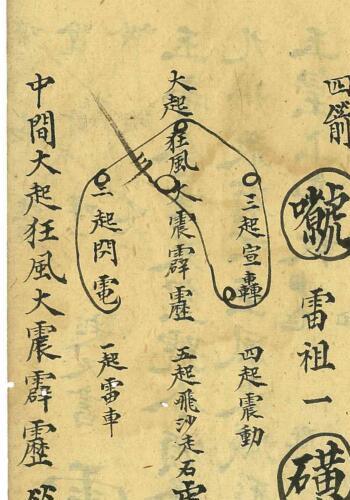 四箭
嚈
雷祖一
磺
三起宣轟
四起震動
大起狂風大震霹靂
五起飛沙走石
二起閃電
一起雷車
中間大起狂風大震霹靂